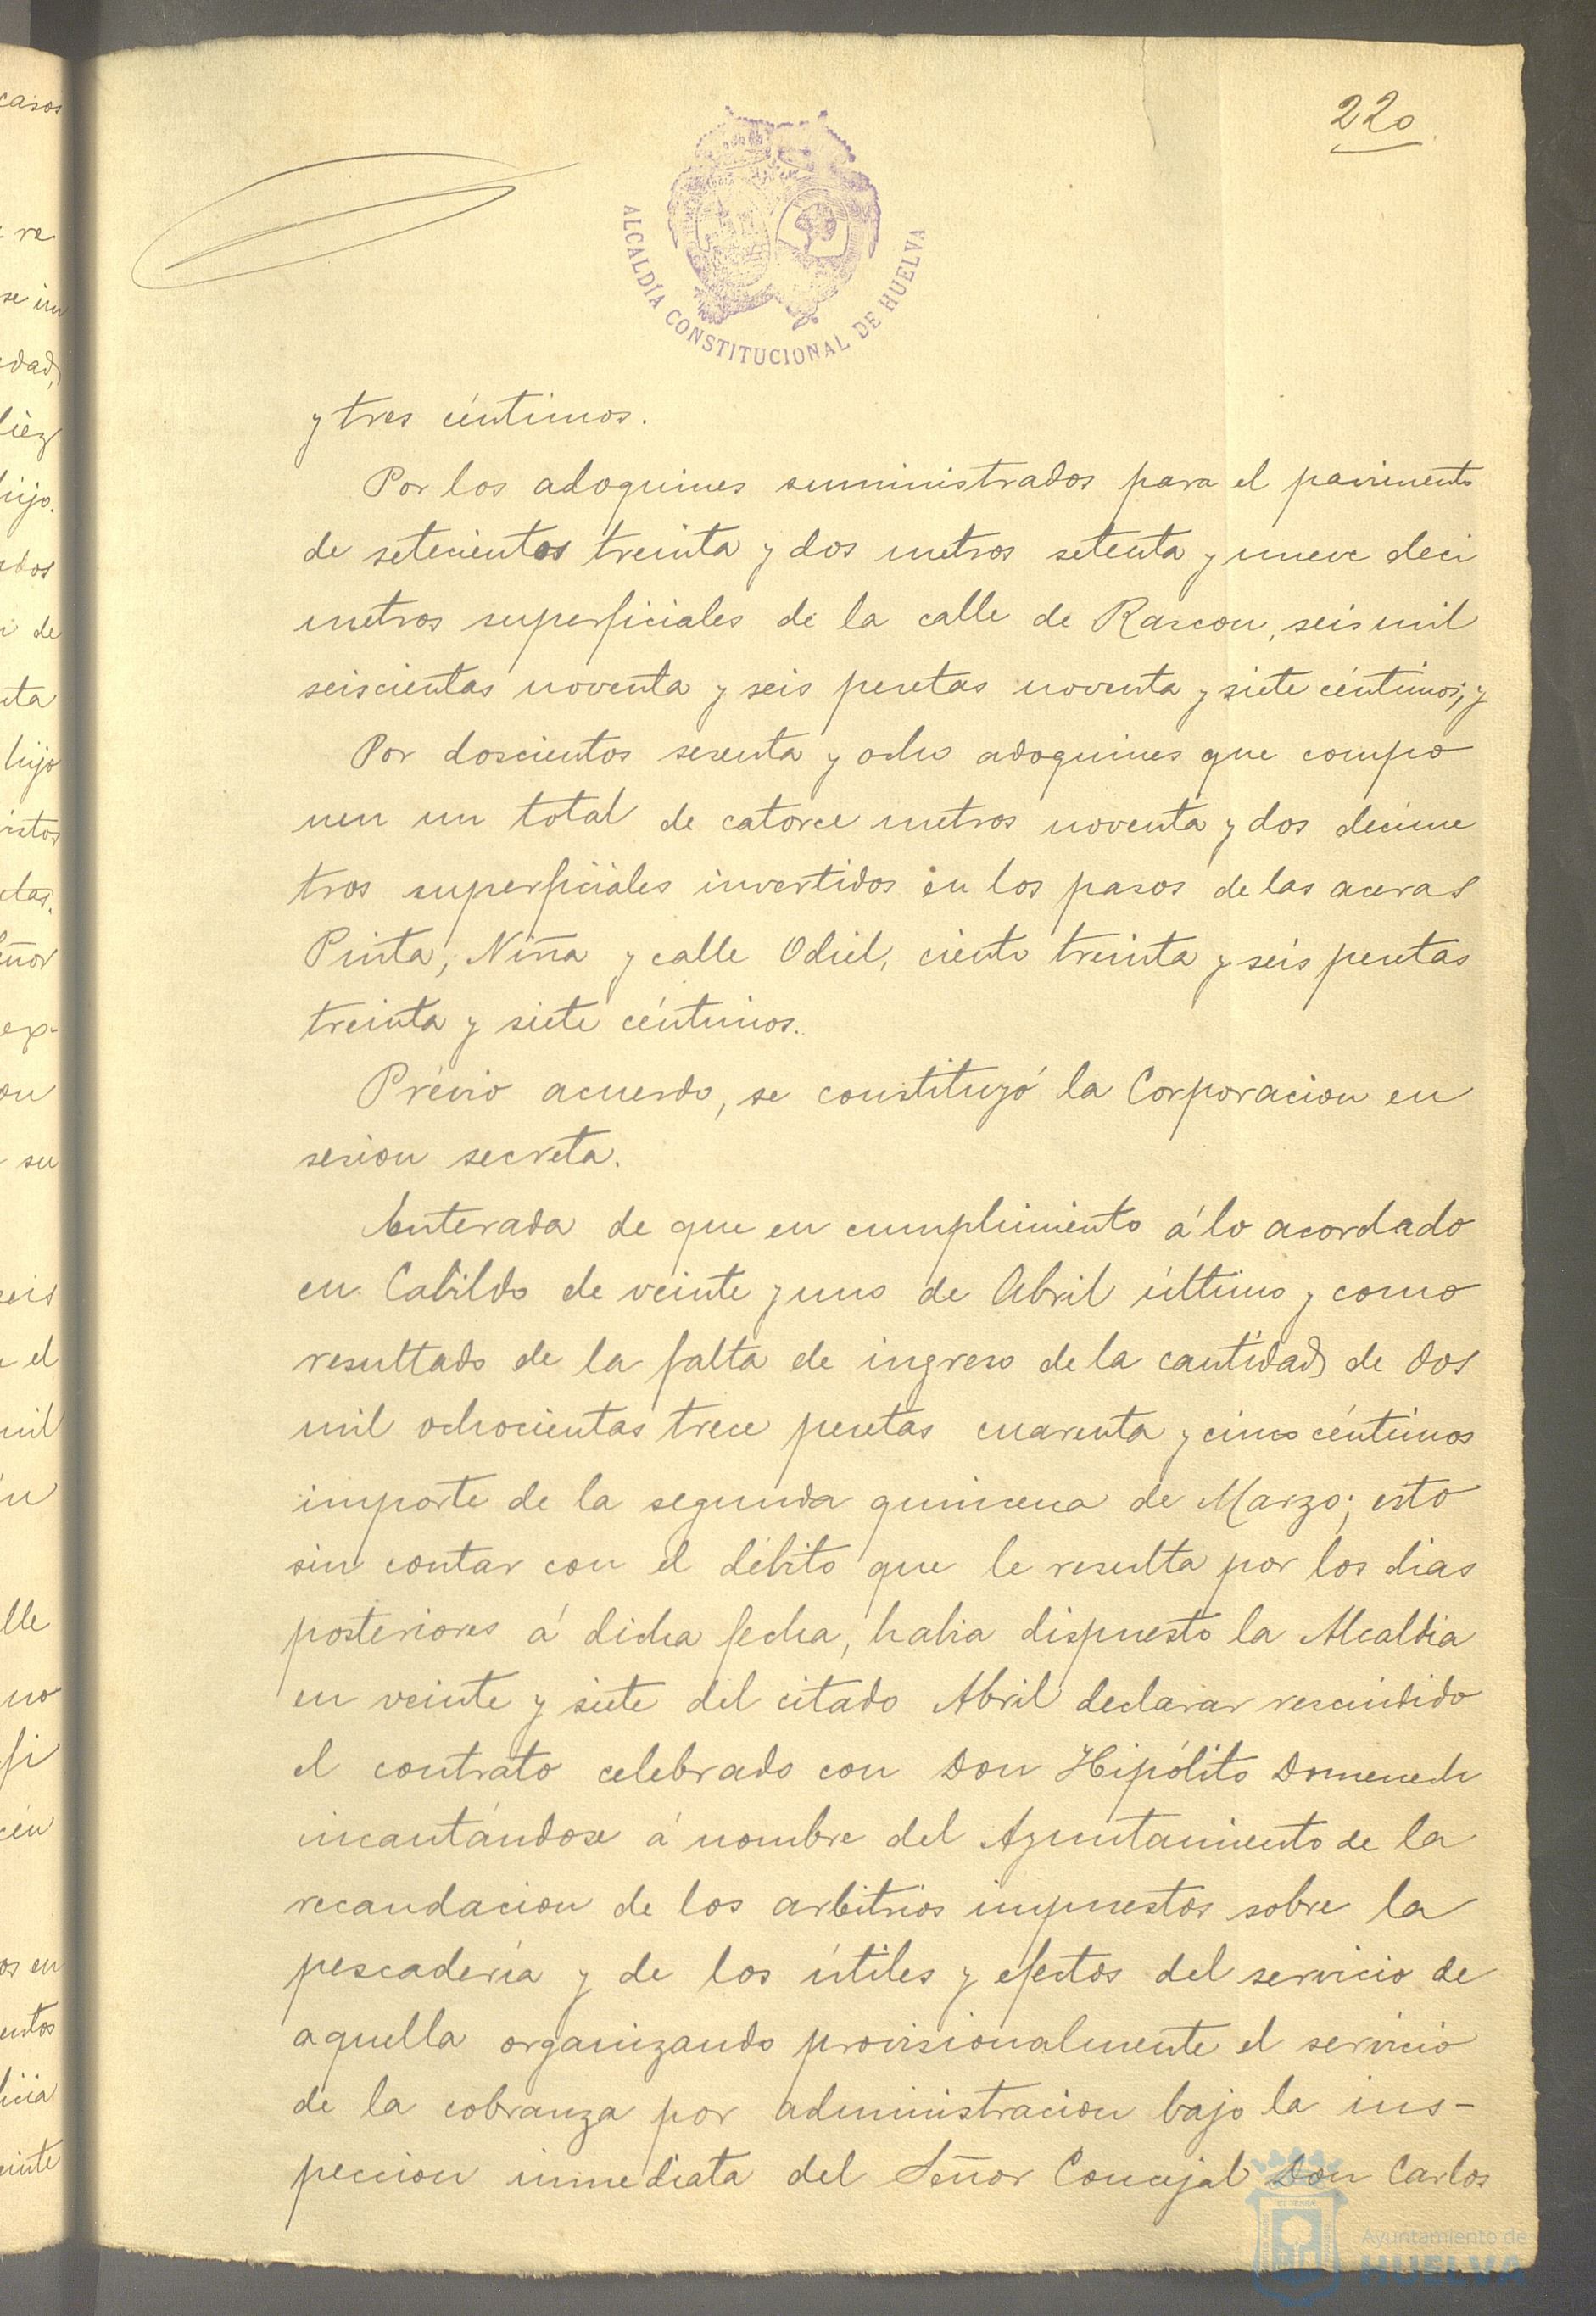 220
ALCALDÍA CONSTITUCIONAL DE HUELVA
y tres céntimos.
Por los adoquines suministrados para el pavimento
de setecientos treinta y dos metros setenta y nueve deci
metros superficiales de la calle de Rascon, seis mil
seiscientas noventa y seis pesetas noventa y siete céntimos; y
Por doscientos sesenta y ocho adoquines que compo
nen un total de catorce metros noventa y dos decíme
tros superficiales invertidos en los pasos de las aceras
Pinta, Niña y calle Odiel, ciento treinta y seis pesetas
treinta y siete céntimos.
Prévio acuerdo, se constituyó la Corporacion en
sesion secreta.
Enterada de que en cumplimiento á lo acordado
en Cabildo de veinte y uno de Abril último y como
resultado de la falta de ingreso de la cantidad de dos
mil ochocientas trece pesetas cuarenta y cinco céntimos
importe de la segunda quincena de Marzo; esto
sin contar con el débito que le resulta por los dias
posteriores á dicha fecha, habia dispuesto la Alcaldia
en veinte y siete del citado Abril declarar rescindido
el contrato celebrado con Don Hipólito Domenech
incautándose á nombre del Ayuntamiento de la
recaudacion de los arbitrios impuestos sobre la
pescadería y de los útiles y efectos del servicio de
aquella organizando provisionalmente el servicio
de la cobranza por administracion bajo la ins-
peccion inmediata del Señor Concejal Don Carlos
Ayuntamiento de
HUELVA